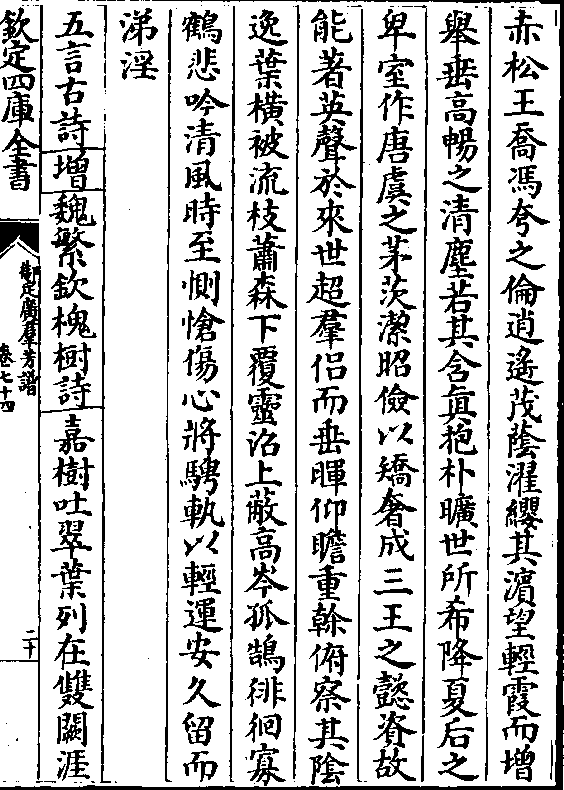 赤松王喬馮夸之倫逍遙茂蔭濯纓其濵望輕霞而增
舉垂高暢之清塵若其含眞抱朴曠世所希降夏后之
卑室作唐虞之茅茨潔昭儉以矯奢成三王之懿資故
能著英聲於來世超羣侣而垂暉仰瞻重榦俯察其隂
逸葉橫被流枝蕭森下覆靈沼上蔽高岑孤鵠徘徊寡
鶴悲吟清風時至惻愴傷心將騁軌以輕運安久留而
涕淫
五言古詩增魏繁欽槐樹詩嘉樹吐翠葉列在雙闕涯
欽定四庫全書
御定廣羣芳譜
卷七十四
二十